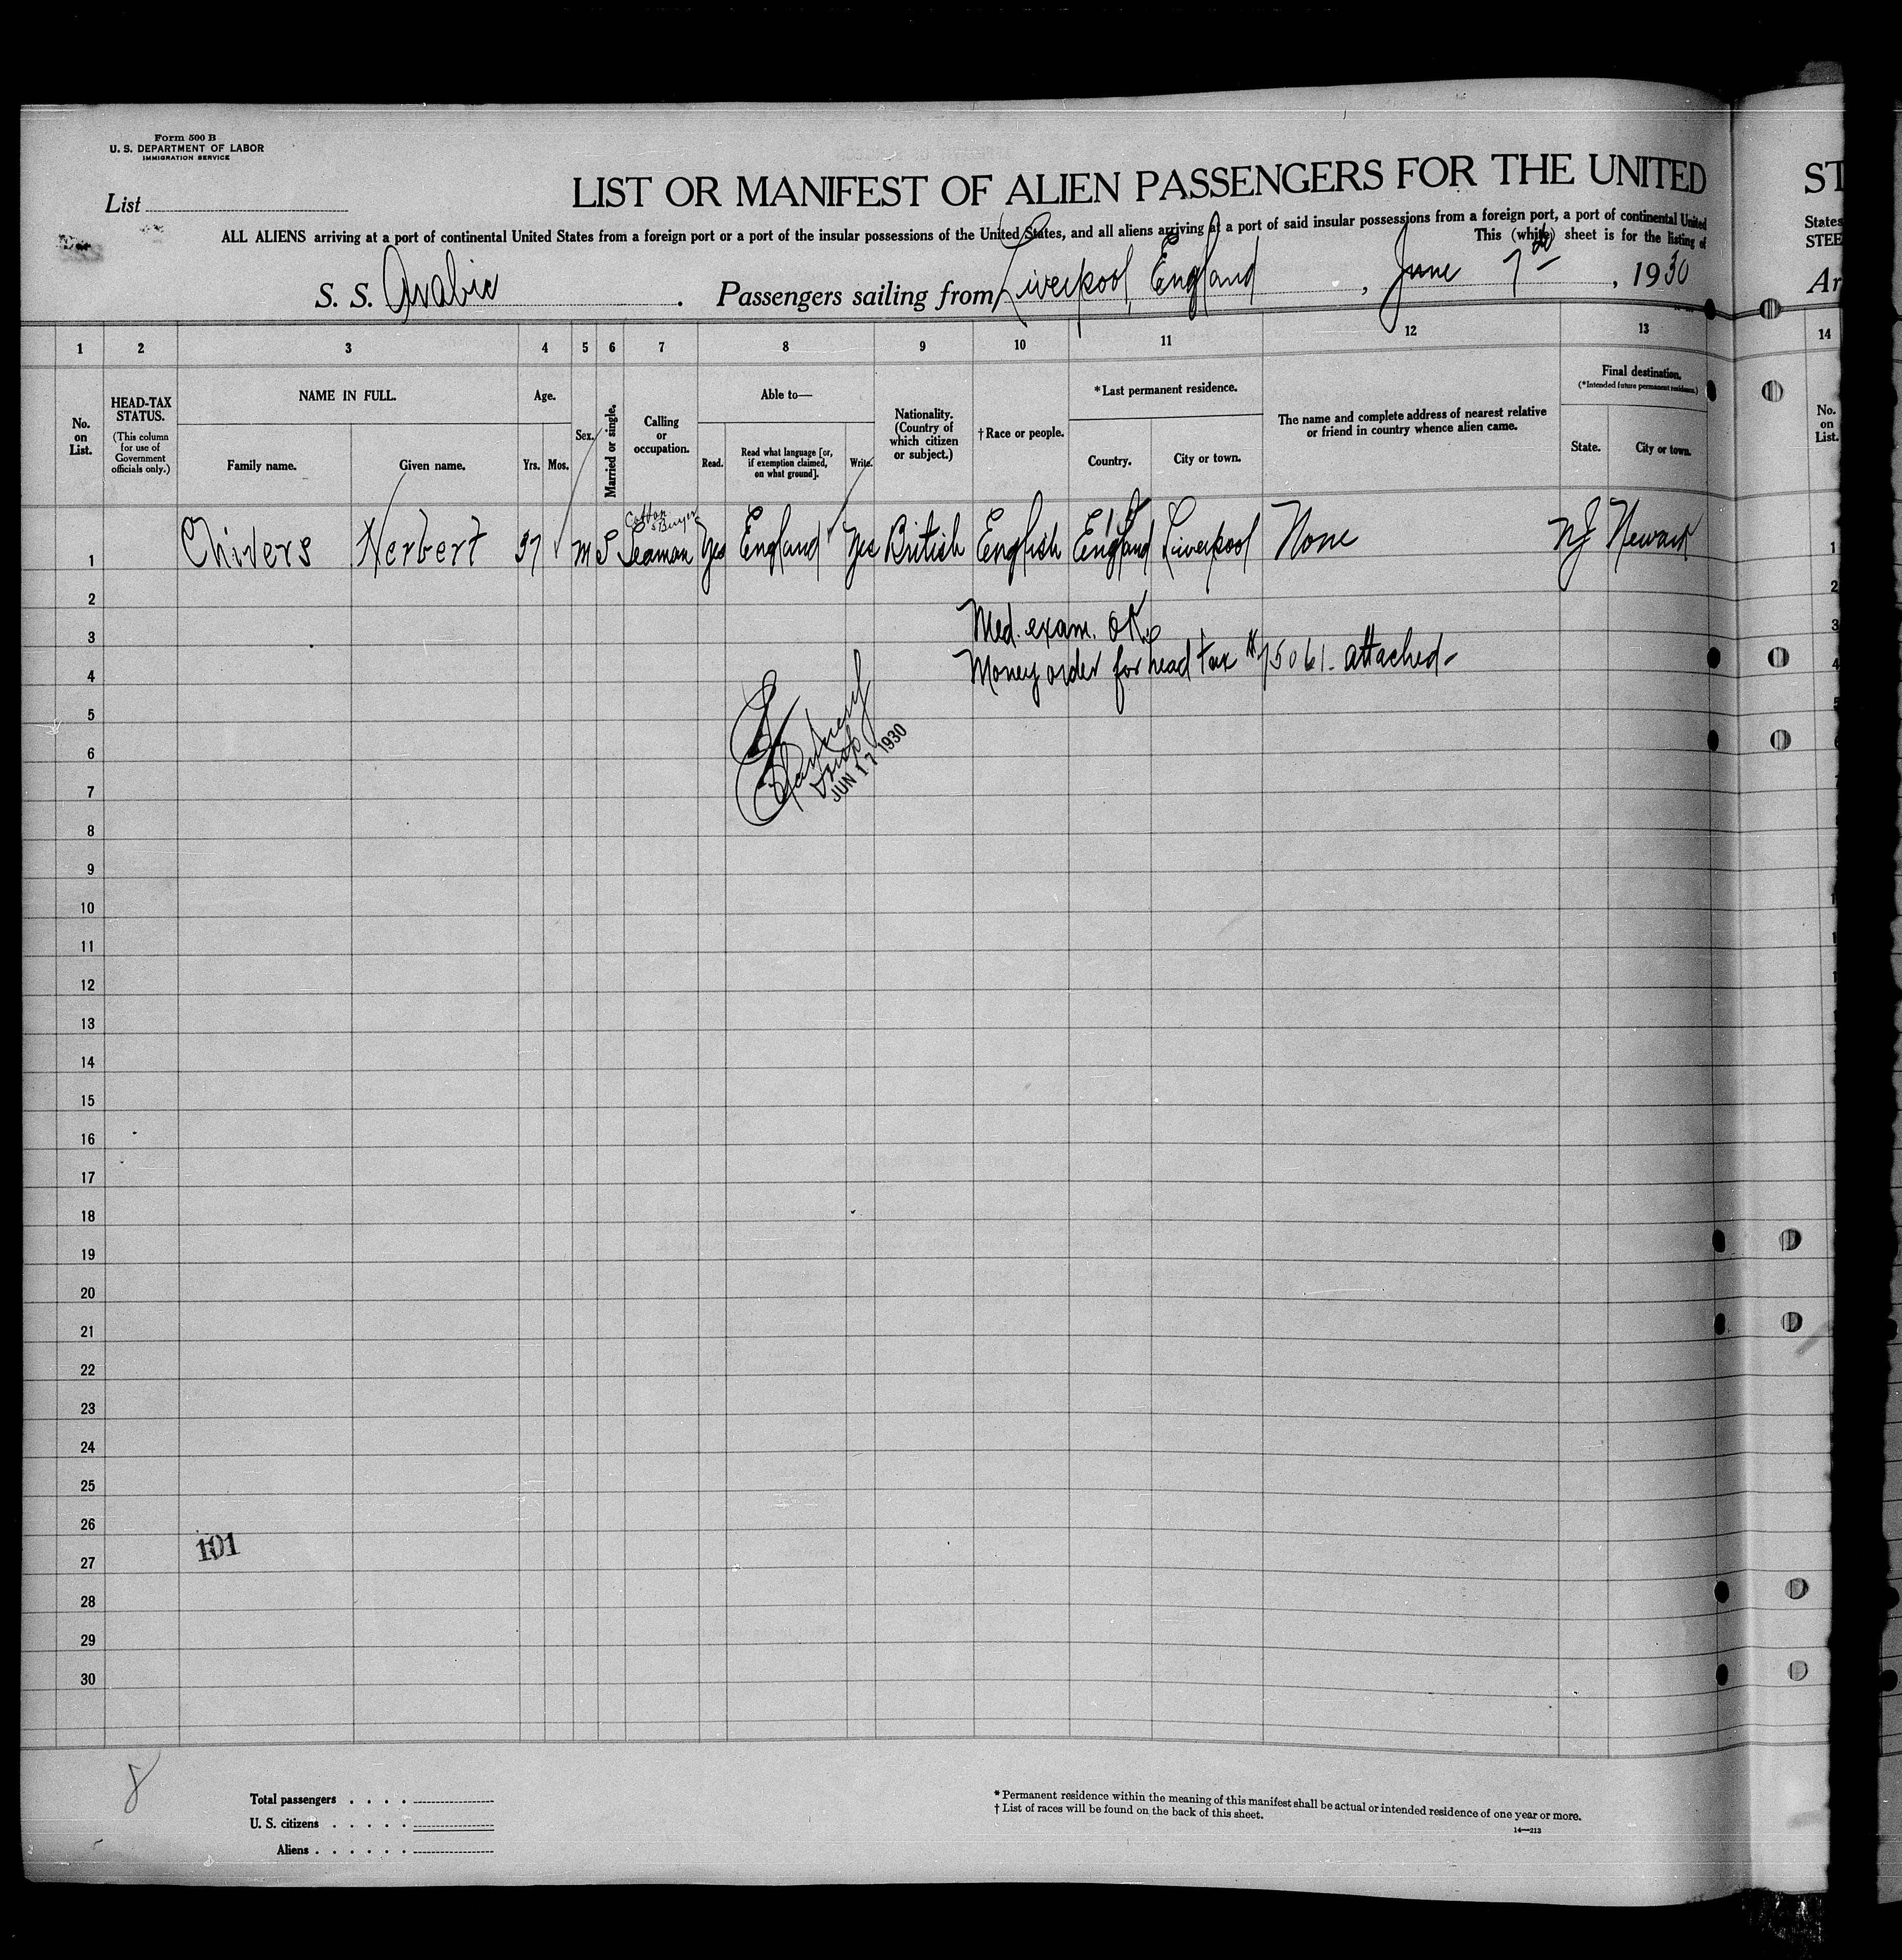 Form 500 B
U. S. DEPARTMENT OF LABOR
IMMIGRATION SERVICE
List
LIST OR MANIFEST OF ALIEN PASSENGERS FOR THE UNITED
ST
ALL ALIENS arriving at a port of continental United States from a foreign port or a port of the insular possessions of the United States, and all aliens arriving at a port of said insular possessions from a foreign port, a port of continental United
States
This (white) sheet is for the listing of
STEE
S. S. Arabic. Passengers sailing from Liverpool, England, June 7th, 1930
Ar
1 2 3 4 5 6 7 8 9 10 11 12 13 14
No. on List.
HEAD-TAX STATUS.
(This column for use of Government officials only.)
NAME IN FULL.
Family name. Given name.
Age.
Yrs. Mos.
Sex.
Married or single.
Calling or occupation.
Able to—
Read. Read what language [or, if exemption claimed, on what ground]. Write.
Nationality. (Country of which citizen or subject.)
† Race or people.
* Last permanent residence.
Country. City or town.
The name and complete address of nearest relative or friend in country whence alien came.
Final destination.
(*Intended future permanent residence.)
State. City or town.
No. on List.
Cotton Buyer
1 Chivers Herbert 37 M S Seaman Yes England Yes British English England Liverpool None NJ Newark 1
2 2
Med. exam. OK.
3 3
Money order for head tax #75061 - attached -
4 4
5 5
6 6
JUN 17 1930
7
8
9
10
11
12
13
14
15
16
17
18
19
20
21
22
23
24
25
26
101
27
28
29
30
8
Total passengers . . . .
U. S. citizens . . . . .
Aliens . . . . . .
* Permanent residence within the meaning of this manifest shall be actual or intended residence of one year or more.
† List of races will be found on the back of this sheet.
14—213